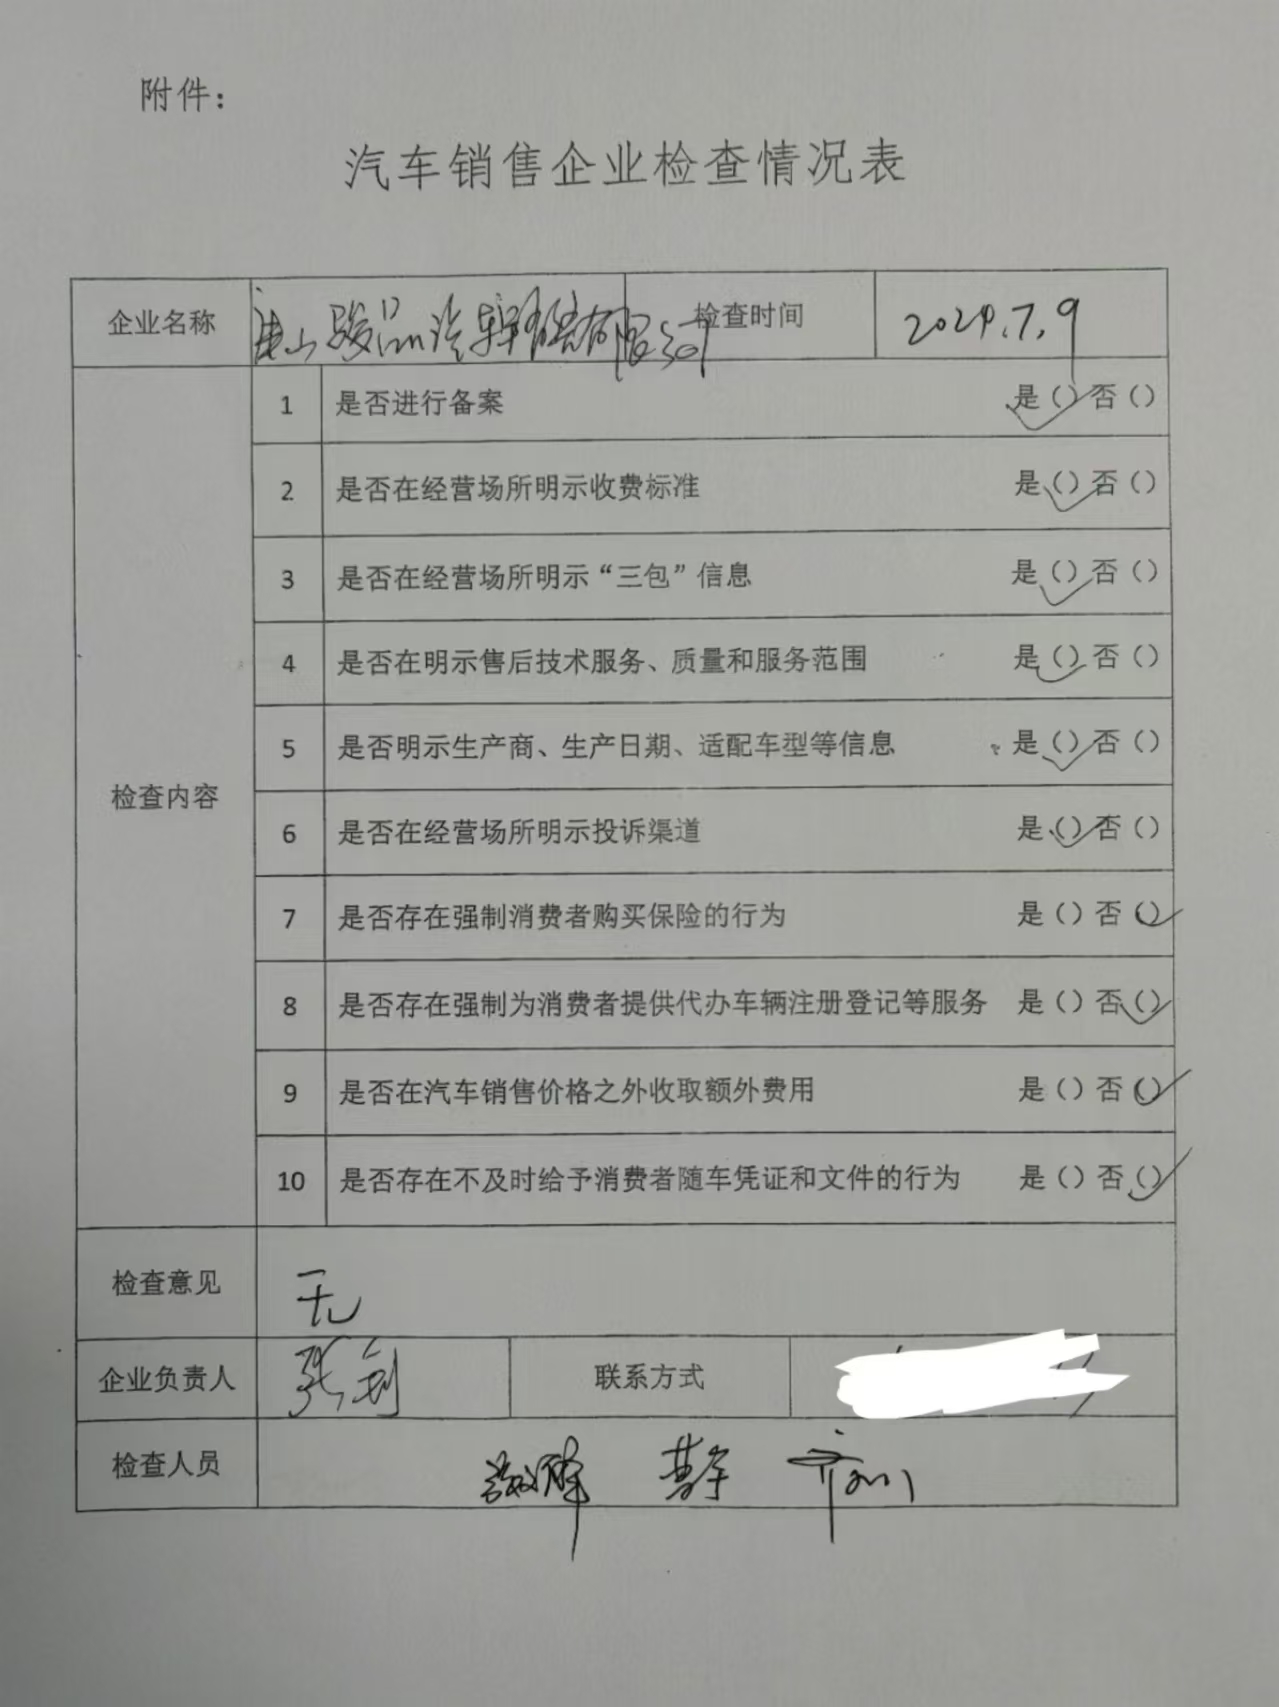 附件：
汽车销售企业检查情况表
企业名称 唐山骏品汽车销售有限公司 检查时间 2024.7.9
检查内容
1 是否进行备案 是（）否（）
2 是否在经营场所明示收费标准 是（）否（）
3 是否在经营场所明示“三包”信息 是（）否（）
4 是否在明示售后技术服务、质量和服务范围 是（）否（）
5 是否明示生产商、生产日期、适配车型等信息 是（）否（）
6 是否在经营场所明示投诉渠道 是（）否（）
7 是否存在强制消费者购买保险的行为 是（）否（）
8 是否存在强制为消费者提供代办车辆注册登记等服务 是（）否（）
9 是否在汽车销售价格之外收取额外费用 是（）否（）
10 是否存在不及时给予消费者随车凭证和文件的行为 是（）否（）
检查意见 无
企业负责人 张剑 联系方式
检查人员